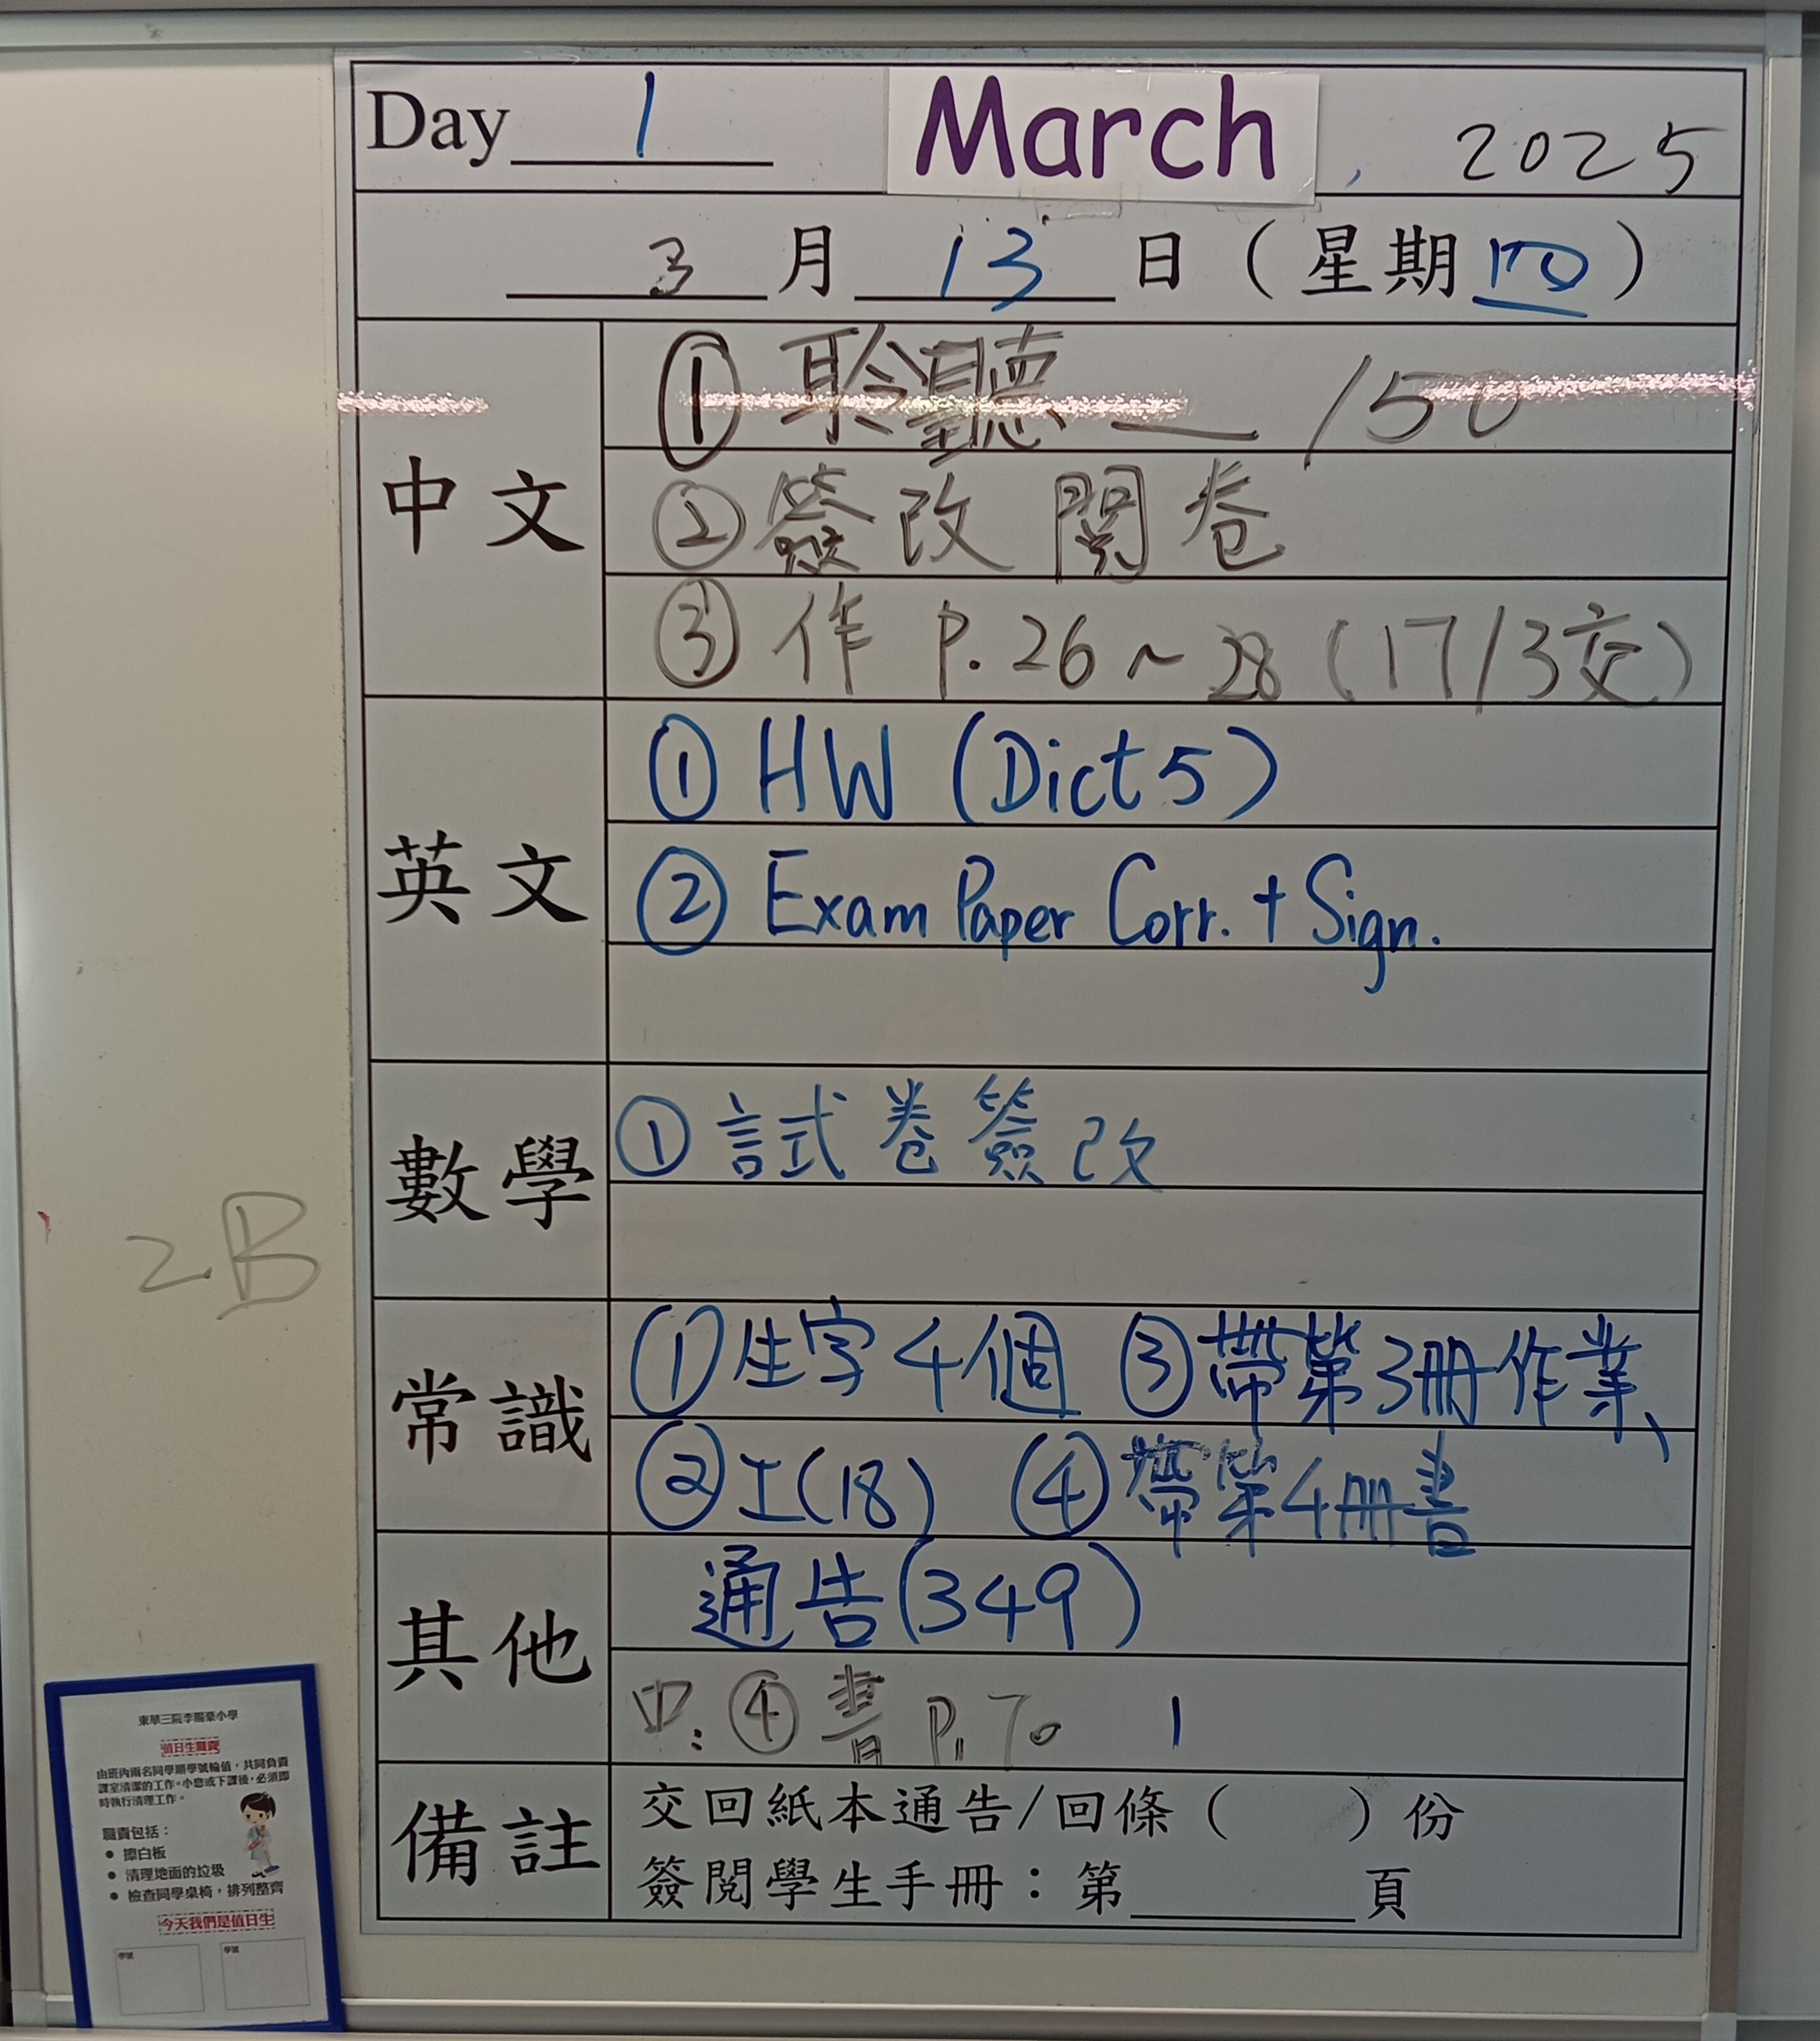 Day 1 March, 2025
3月13日(星期四)
中文
① 聆聽 /50
② 簽改閱卷
③ 作 P.26~28 (17/3交)
英文
① HW (Dict 5)
② Exam Paper Corr. + Sign.
數學
① 試卷簽改
常識
① 生字4個 ③ 帶第3冊作業、
② 工(18) ④ 帶第4冊書
其他
通告(349)
中: ④ 書 P.70 1
備註
交回紙本通告/回條( )份
簽閱學生手冊:第 頁
2B
東華三院李賜豪小學
值日生職責
由班內兩名同學順學號輪值,共同負責
課室清潔的工作。小息或下課後,必須即
時執行清理工作。
職責包括:
● 擦白板
● 清理地面的垃圾
● 檢查同學桌椅,排列整齊
今天我們是值日生
學號 學號